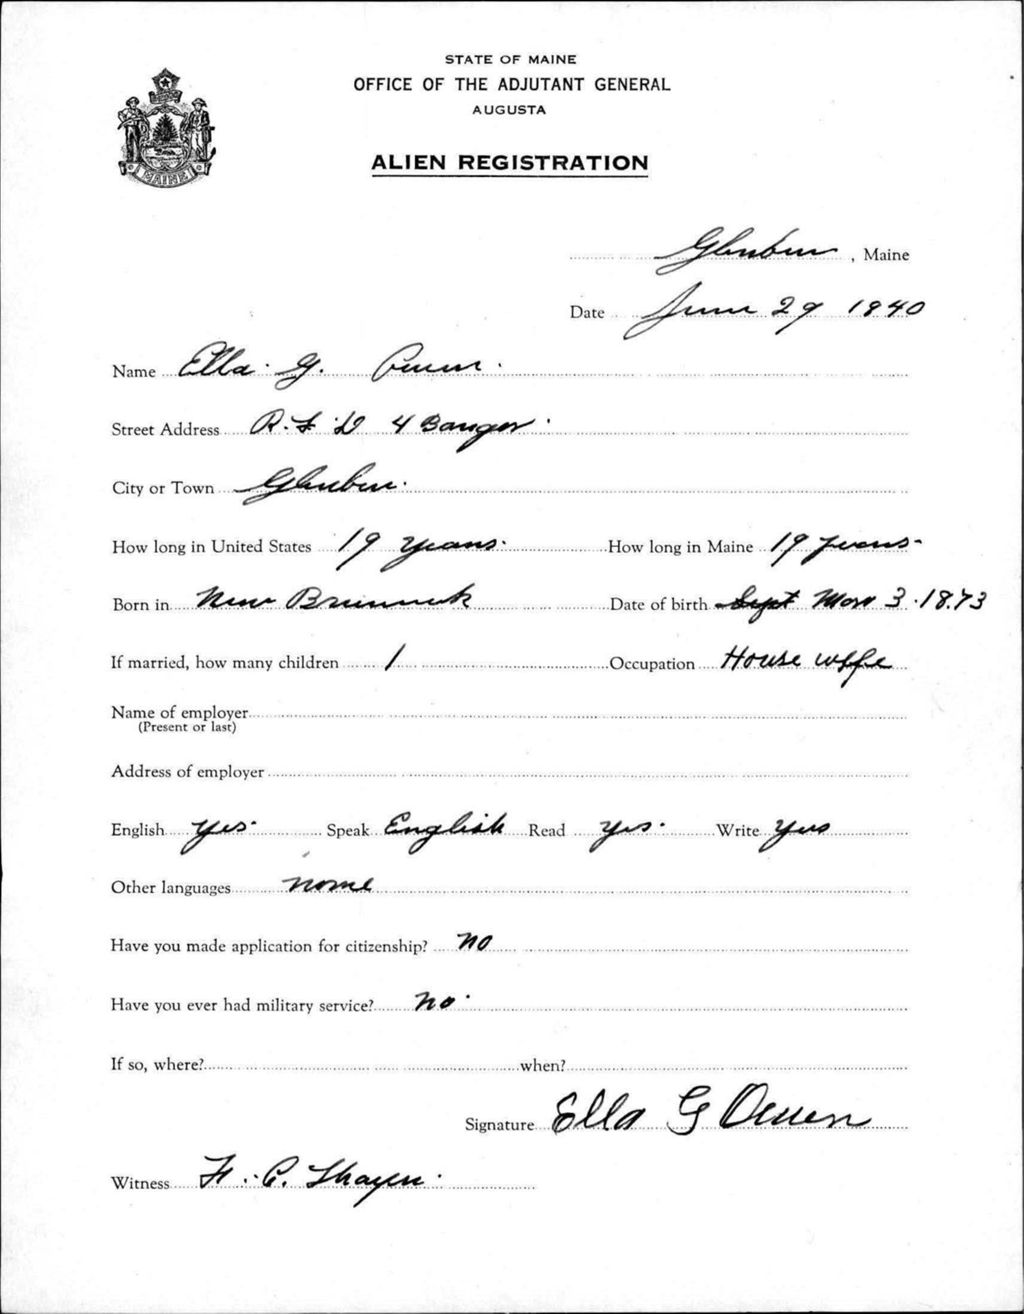 STATE OF MAINE
OFFICE OF THE ADJUTANT GENERAL
AUGUSTA
ALIEN REGISTRATION
MAINE
Glenburn, Maine
Date June 29 1940
Name Ella G. Owen.
Street Address R.F.D 4 Bangor.
City or Town Glenburn.
How long in United States 19 years. How long in Maine 19 years.
Born in New Brunswick Date of birth Sept 3 1873
If married, how many children 1 Occupation House wife
Name of employer
(Present or last)
Address of employer
English Yes. Speak English Read Yes. Write Yes
Other languages none
Have you made application for citizenship? no
Have you ever had military service? no.
If so, where? when?
Signature Ella G Owen
Witness F. C. Thayer.